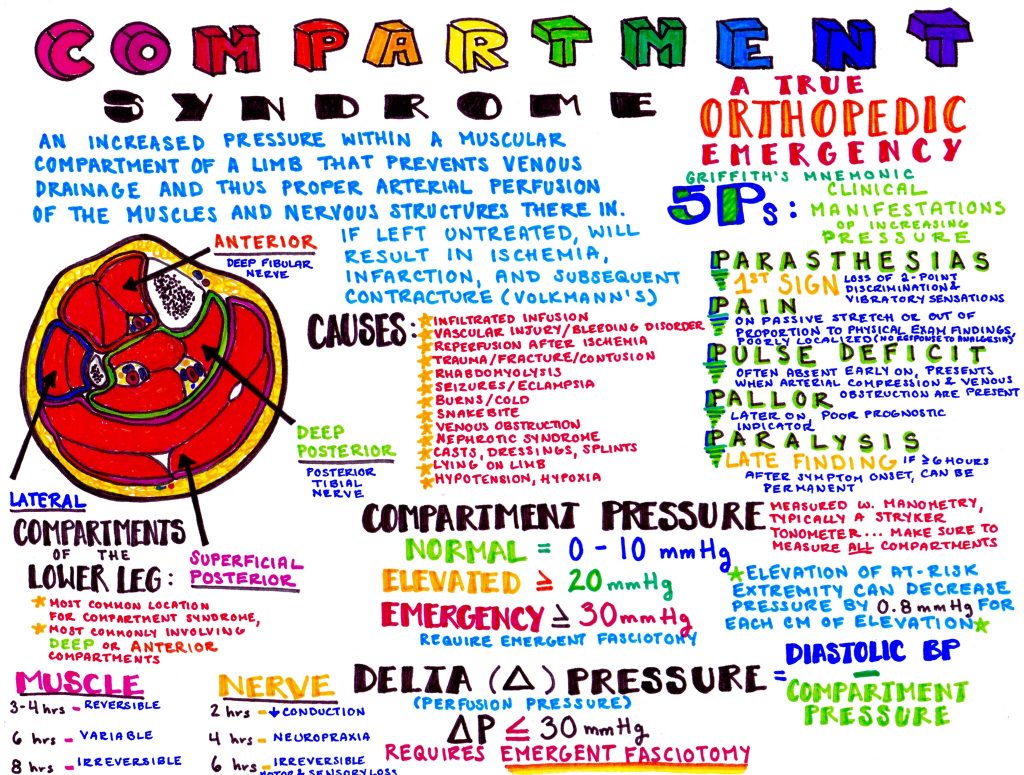 COMPARTMENT
SYNDROME
A TRUE
ORTHOPEDIC
EMERGENCY
AN INCREASED PRESSURE WITHIN A MUSCULAR
COMPARTMENT OF A LIMB THAT PREVENTS VENOUS
DRAINAGE AND THUS PROPER ARTERIAL PERFUSION
OF THE MUSCLES AND NERVOUS STRUCTURES THERE IN.
IF LEFT UNTREATED, WILL
RESULT IN ISCHEMIA,
INFARCTION, AND SUBSEQUENT
CONTRACTURE (VOLKMANN'S)
GRIFFITH'S MNEMONIC
5Ps:
CLINICAL
MANIFESTATIONS
OF INCREASING
PRESSURE
PARASTHESIAS
1ST SIGN
LOSS OF 2-POINT
DISCRIMINATION &
VIBRATORY SENSATIONS
PAIN
ON PASSIVE STRETCH OR OUT OF
PROPORTION TO PHYSICAL EXAM FINDINGS,
POORLY LOCALIZED (NO RESPONSE TO ANALGESIA)
PULSE DEFICIT
OFTEN ABSENT EARLY ON, PRESENTS
WHEN ARTERIAL COMPRESSION & VENOUS
OBSTRUCTION ARE PRESENT
PALLOR
LATER ON, POOR PROGNOSTIC
INDICATOR
PARALYSIS
LATE FINDING
IF ≥6 HOURS
AFTER SYMPTOM ONSET, CAN BE
PERMANENT
ANTERIOR
DEEP FIBULAR
NERVE
DEEP
POSTERIOR
POSTERIOR
TIBIAL
NERVE
LATERAL
SUPERFICIAL
POSTERIOR
COMPARTMENTS
OF THE
LOWER LEG:
MOST COMMON LOCATION
FOR COMPARTMENT SYNDROME,
MOST COMMONLY INVOLVING
DEEP OR ANTERIOR
COMPARTMENTS
CAUSES:
INFILTRATED INFUSION
VASCULAR INJURY/BLEEDING DISORDER
REPERFUSION AFTER ISCHEMIA
TRAUMA/FRACTURE/CONTUSION
RHABDOMYOLYSIS
SEIZURES/ECLAMPSIA
BURNS/COLD
SNAKE BITE
VENOUS OBSTRUCTION
NEPHROTIC SYNDROME
CASTS, DRESSINGS, SPLINTS
LYING ON LIMB
HYPOTENSION, HYPOXIA
COMPARTMENT PRESSURE
NORMAL = 0-10 mmHg
ELEVATED ≥ 20 mmHg
EMERGENCY ≥ 30 mmHg
REQUIRE EMERGENT FASCIOTOMY
MEASURED W. MANOMETRY,
TYPICALLY A STRYKER
TONOMETER... MAKE SURE TO
MEASURE ALL COMPARTMENTS
ELEVATION OF AT-RISK
EXTREMITY CAN DECREASE
PRESSURE BY 0.8 mmHg FOR
EACH CM OF ELEVATION
MUSCLE
3-4 hrs - REVERSIBLE
6 hrs - VARIABLE
8 hrs - IRREVERSIBLE
NERVE
2 hrs - ↓ CONDUCTION
4 hrs - NEUROPRAXIA
6 hrs - IRREVERSIBLE
MOTOR & SENSORY LOSS
DELTA (Δ) PRESSURE =
(PERFUSION PRESSURE)
DIASTOLIC BP
-
COMPARTMENT
PRESSURE
ΔP ≤ 30 mmHg
REQUIRES EMERGENT FASCIOTOMY